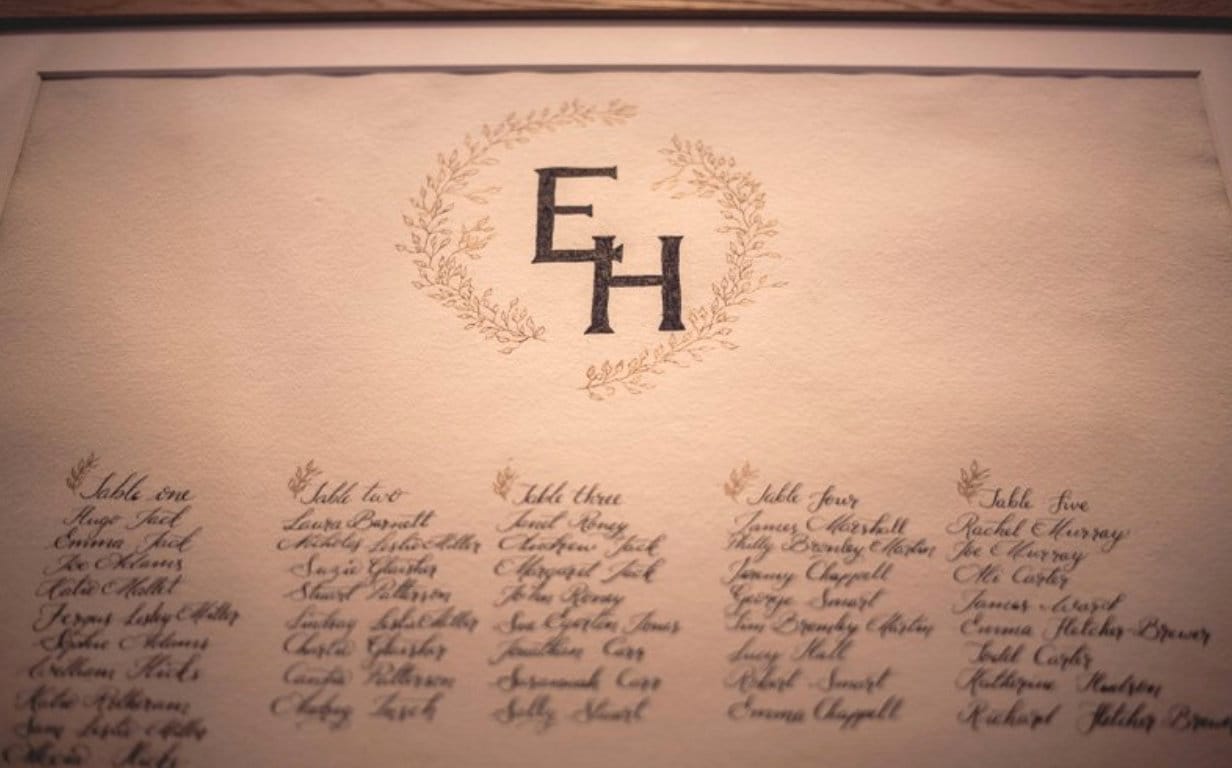 E
H
Table one
Hugo Jack
Emma Jack
Joe Adams
Katie Mallet
Fergus Lesley Miller
Sophie Adams
William Hicks
Katie
Sam Leslie Miller
Hicks
Table two
Laura Barnett
Nicholas Leslie Miller
Suzie Glaister
Stuart Patterson
Lindsay Leslie Miller
Charlie Glaister
Patterson
Table three
Janet Roney
Andrew Jack
Margaret Jack
John Roney
Sue Egerton Jones
Jonathan Carr
Susannah Carr
Sally Stuart
Table four
James Marshall
Philly Bromley Martin
Jeremy Chappell
George Smart
Tim Bromley Martin
Lucy Hall
Robert Smart
Emma Chappell
Table five
Rachel Murray
Joe Murray
Ali Carter
James Ward
Emma Fletcher-Brewer
Todd Carter
Katherine
Richard Fletcher-Brewer